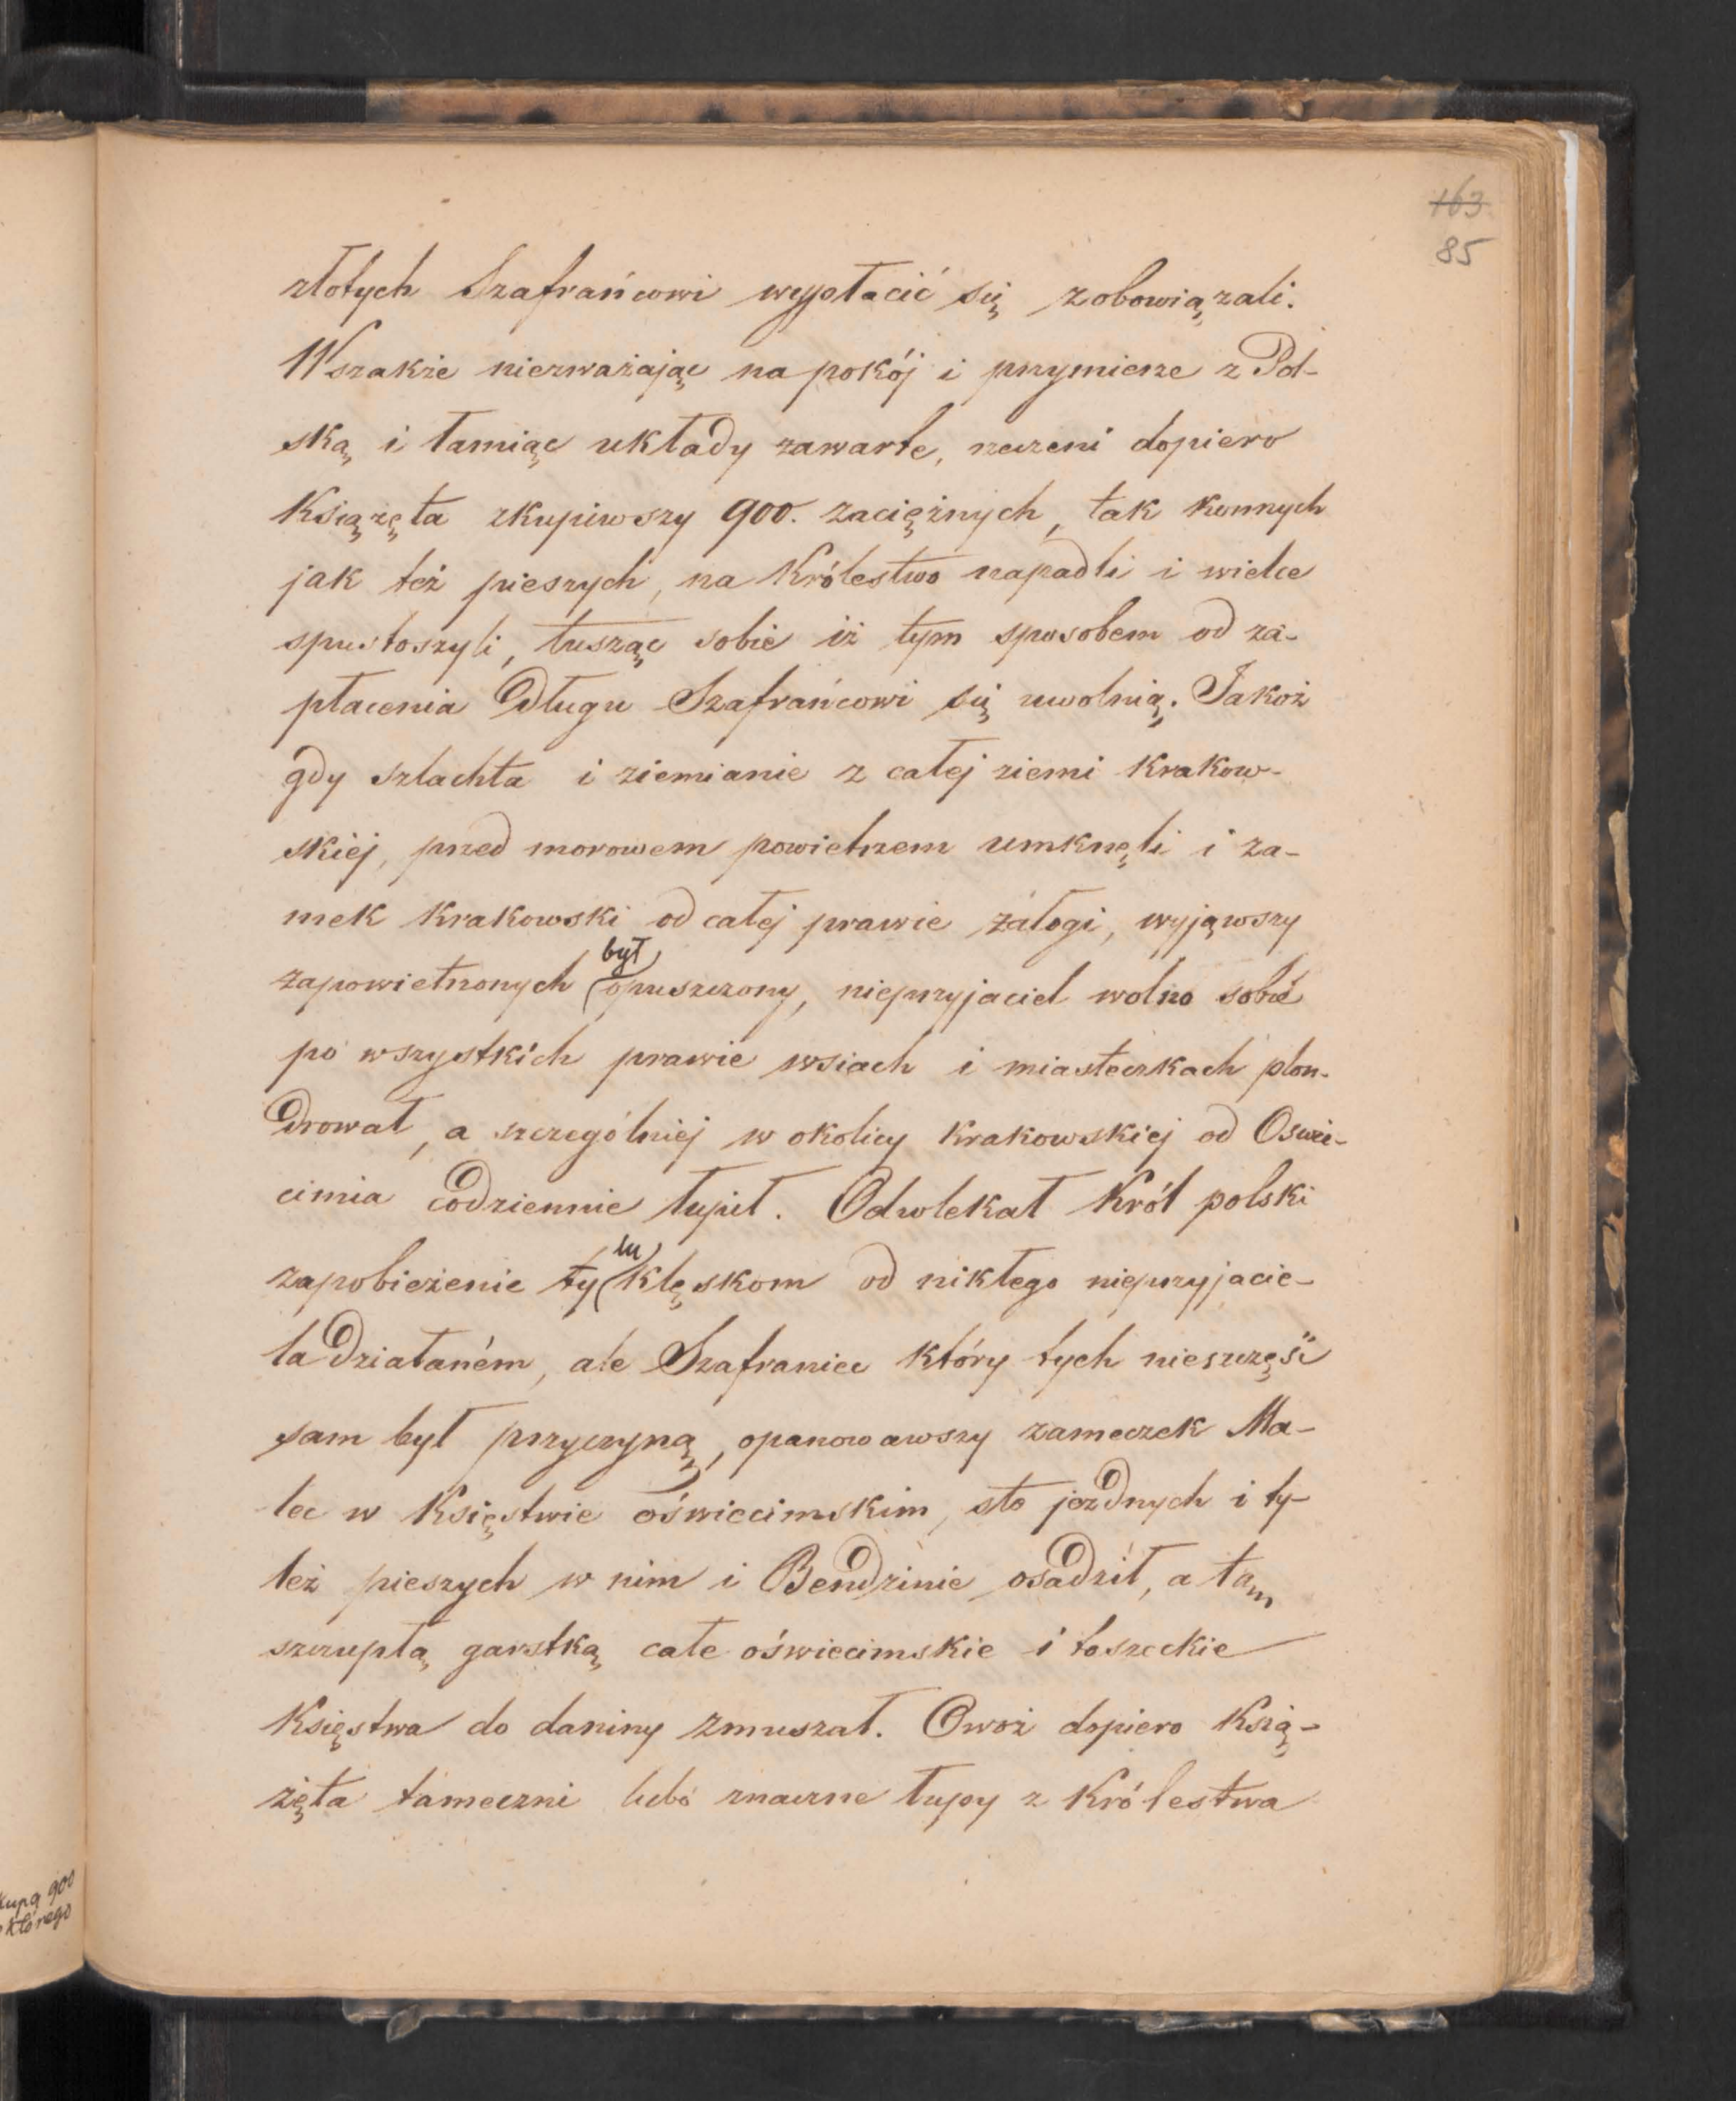 163
85
złotych Szafrańcowi wypłacić się zobowiązali.
Wszakże niezważając na pokój i przymierze z Pol-
ską i łamiąc układy zawarte, rzeczeni dopiero
Książęta zkupiwszy 900. zaciężnych, tak konnych
jak też pieszych, na Królestwo napadli i wielce
spustoszyli, tusząc sobie iż tym sposobem od za-
płacenia długu Szafrańcowi się uwolnią. Jakoż
gdy szlachta i ziemianie z całej ziemi Krakow-
skiéj, przed morowem powietrzem umknęli i za-
mek Krakowski od całej prawie załogi, wyjąwszy
był
zapowietrzonych opuszczony, nieprzyjaciel wolno sobie
po wszystkich prawie wsiach i miasteczkach plon-
drował, a szczególniej w okolicy Krakowskiej od Oswie-
cimia codziennie łupił. Odwlekał Król polski
lu
zapobieżenie ty klęskom od nikłego nieprzyjacie-
la działaném, ale Szafraniec który tych nieszczęść
sam był przyczyną, opanowawszy zameczek Ma-
lec w Księstwie oświecimskim, sto jezdnych i ty-
leż pieszych w nim i Bendzinie osadził, a tam
szczupłą garstką całe oświecimskie i toszeckie
Księstwa do daniny zmuszał. Owoż dopiero Ksią-
żęta tameczni lubo znaczne łupy z Królestwa
kupą 900
którego